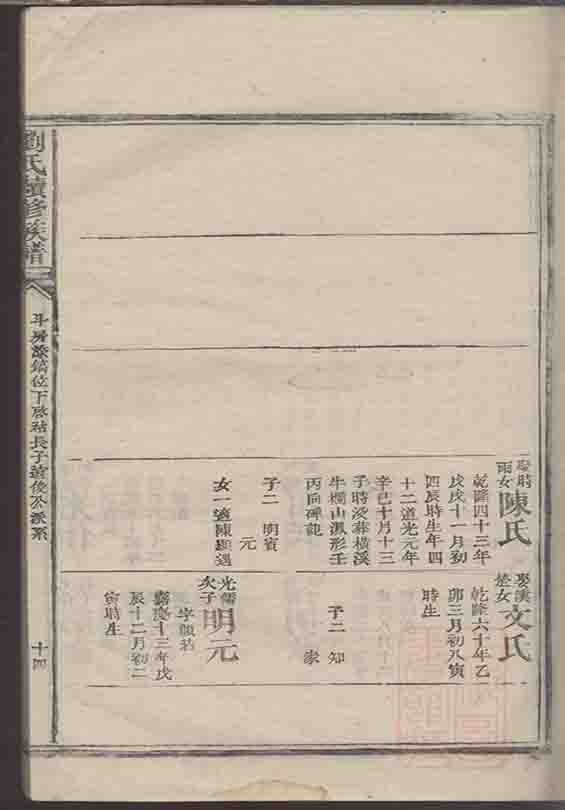 娶時
雨女
陳氏
乾隆四十三年
戊戌十一月初
四辰時生年四
十二道光元年
辛巳十月十三
子時沒葬橫溪
牛欄山瓢形壬
丙向碑記
子二 明賓
元
女一適陳顯遇
娶漢
楚女
文氏
乾隆六十年乙
卯三月初八寅
時生
子二 知
家
光儒
次子
明元
字顯
嘉慶十三年戊
辰十二月初二
寅時生
劉氏續修族譜
斗房
位下
長子
俊公派系
十四